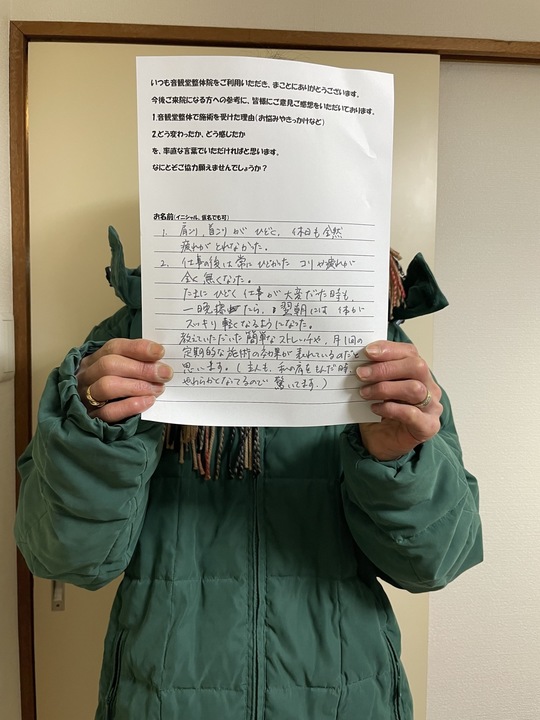 いつも音観堂整体院をご利用いただき、まことにありがとうございます。
今後ご来院になる方への参考に、皆様にご意見ご感想をいただいております。
1.音観堂整体で施術を受けた理由(お悩みやきっかけなど)
2.どう変わったか、どう感じたか
を、率直な言葉でいただければと思います。
なにとぞご協力願えませんでしょうか?
お名前(イニシャル、仮名でも可)
1. 肩こり、首こりが ひどく、休日も全然
疲れがとれなかった。
2. 仕事の後は常に ひどかった コリや疲れが
全く無くなった。
たまに ひどく 仕事が大変だった時も、
一晩寝たら、翌朝には 体が
スッキリ 軽くなるようになった。
教えていただいた 簡単な ストレッチや、月1回の
定期的な 施術の効果が 表れているのだと
思います。(主人も、私の肩をもんだ時
やわらかくなってるので 驚いてます。)